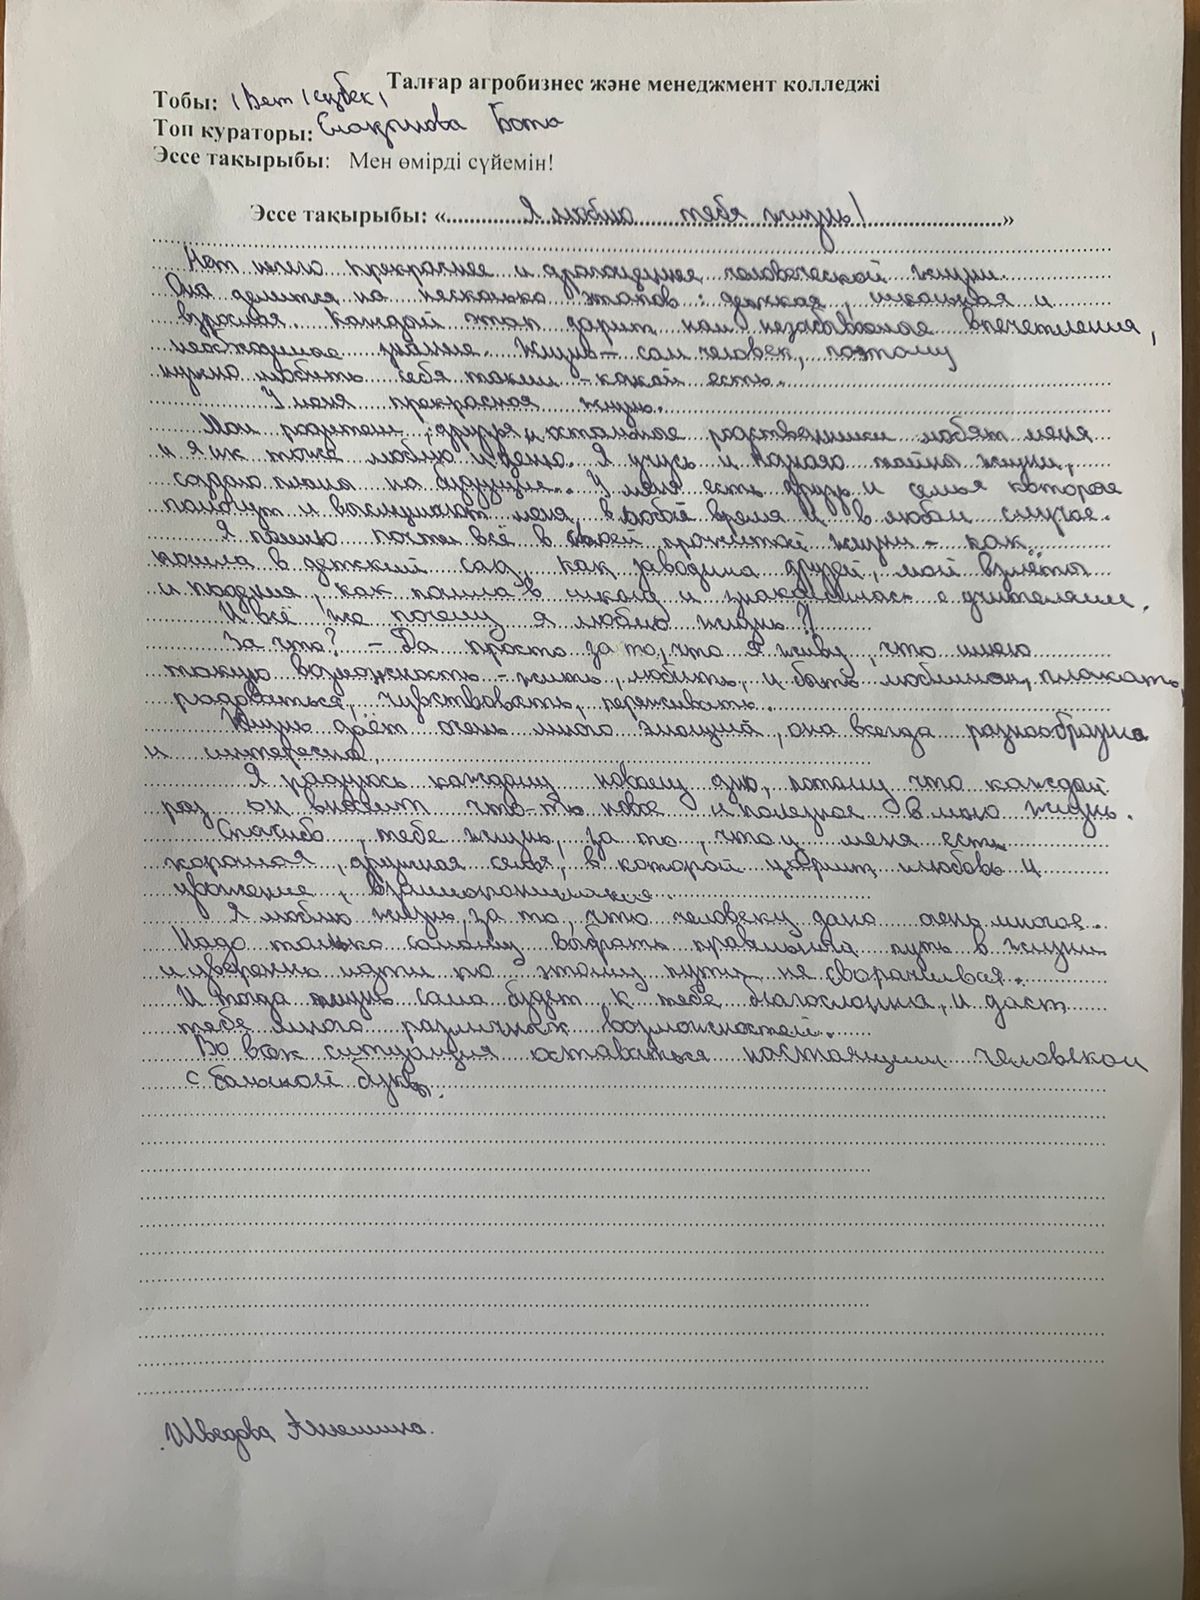 Талғар агробизнес және менеджмент колледжі
Тобы:
Топ кураторы: Бота
Эссе тақырыбы: Мен өмірді сүйемін!
Эссе тақырыбы: «Я люблю тебя жизнь!»
Нет нечего прекраснее и драгоценнее человеческой жизни.
Она делится на несколько этапов: детская, школьная и
взрослая. Каждый этап дарит нам незабываемые впечатления,
необходимые знания. Жизнь – сам человек, поэтому
нужно любить себя таким – какой есть.
У меня прекрасная жизнь.
Мои родители, друзья и остальные родственники любят меня
и я их тоже люблю и ценю. Я учусь и познаю тайны жизни,
создаю планы на будущие. У меня есть друзья и семья которые
поймут и выслушают меня, в любое время и в любом случае.
Я помню почти всё в своей прожитой жизни – как
пошла в детский сад, как заводила друзей, мои взлёты
и падения, как пошла в школу и знакомилась с учителями.
И всё же почему я люблю жизнь?
За что? – Да просто за то, что я живу, что имею
такую возможность – жить, любить, и быть любимой, плакать,
радоваться, чувствовать, переживать.
Жизнь даёт очень много эмоций, она всегда разнообразна
и интересна.
Я радуюсь каждому новому дню, потому что каждый
раз он вносит что-то новое и полезное в мою жизнь.
Спасибо, тебе жизнь, за то, что у меня есть
хорошая, дружная семья, в которой царит любовь и
уважение, взаимопонимание.
Я люблю жизнь, за то, что человеку дано очень многое.
Надо только самому выбрать правильно путь в жизни
и уверенно идти по этому пути не сворачивая.
И тогда жизнь сама будет к тебе благосклонна, и даст
тебе много различных возможностей.
Во всех ситуация оставаться настоящим человеком
с большой буквы.
Шведова